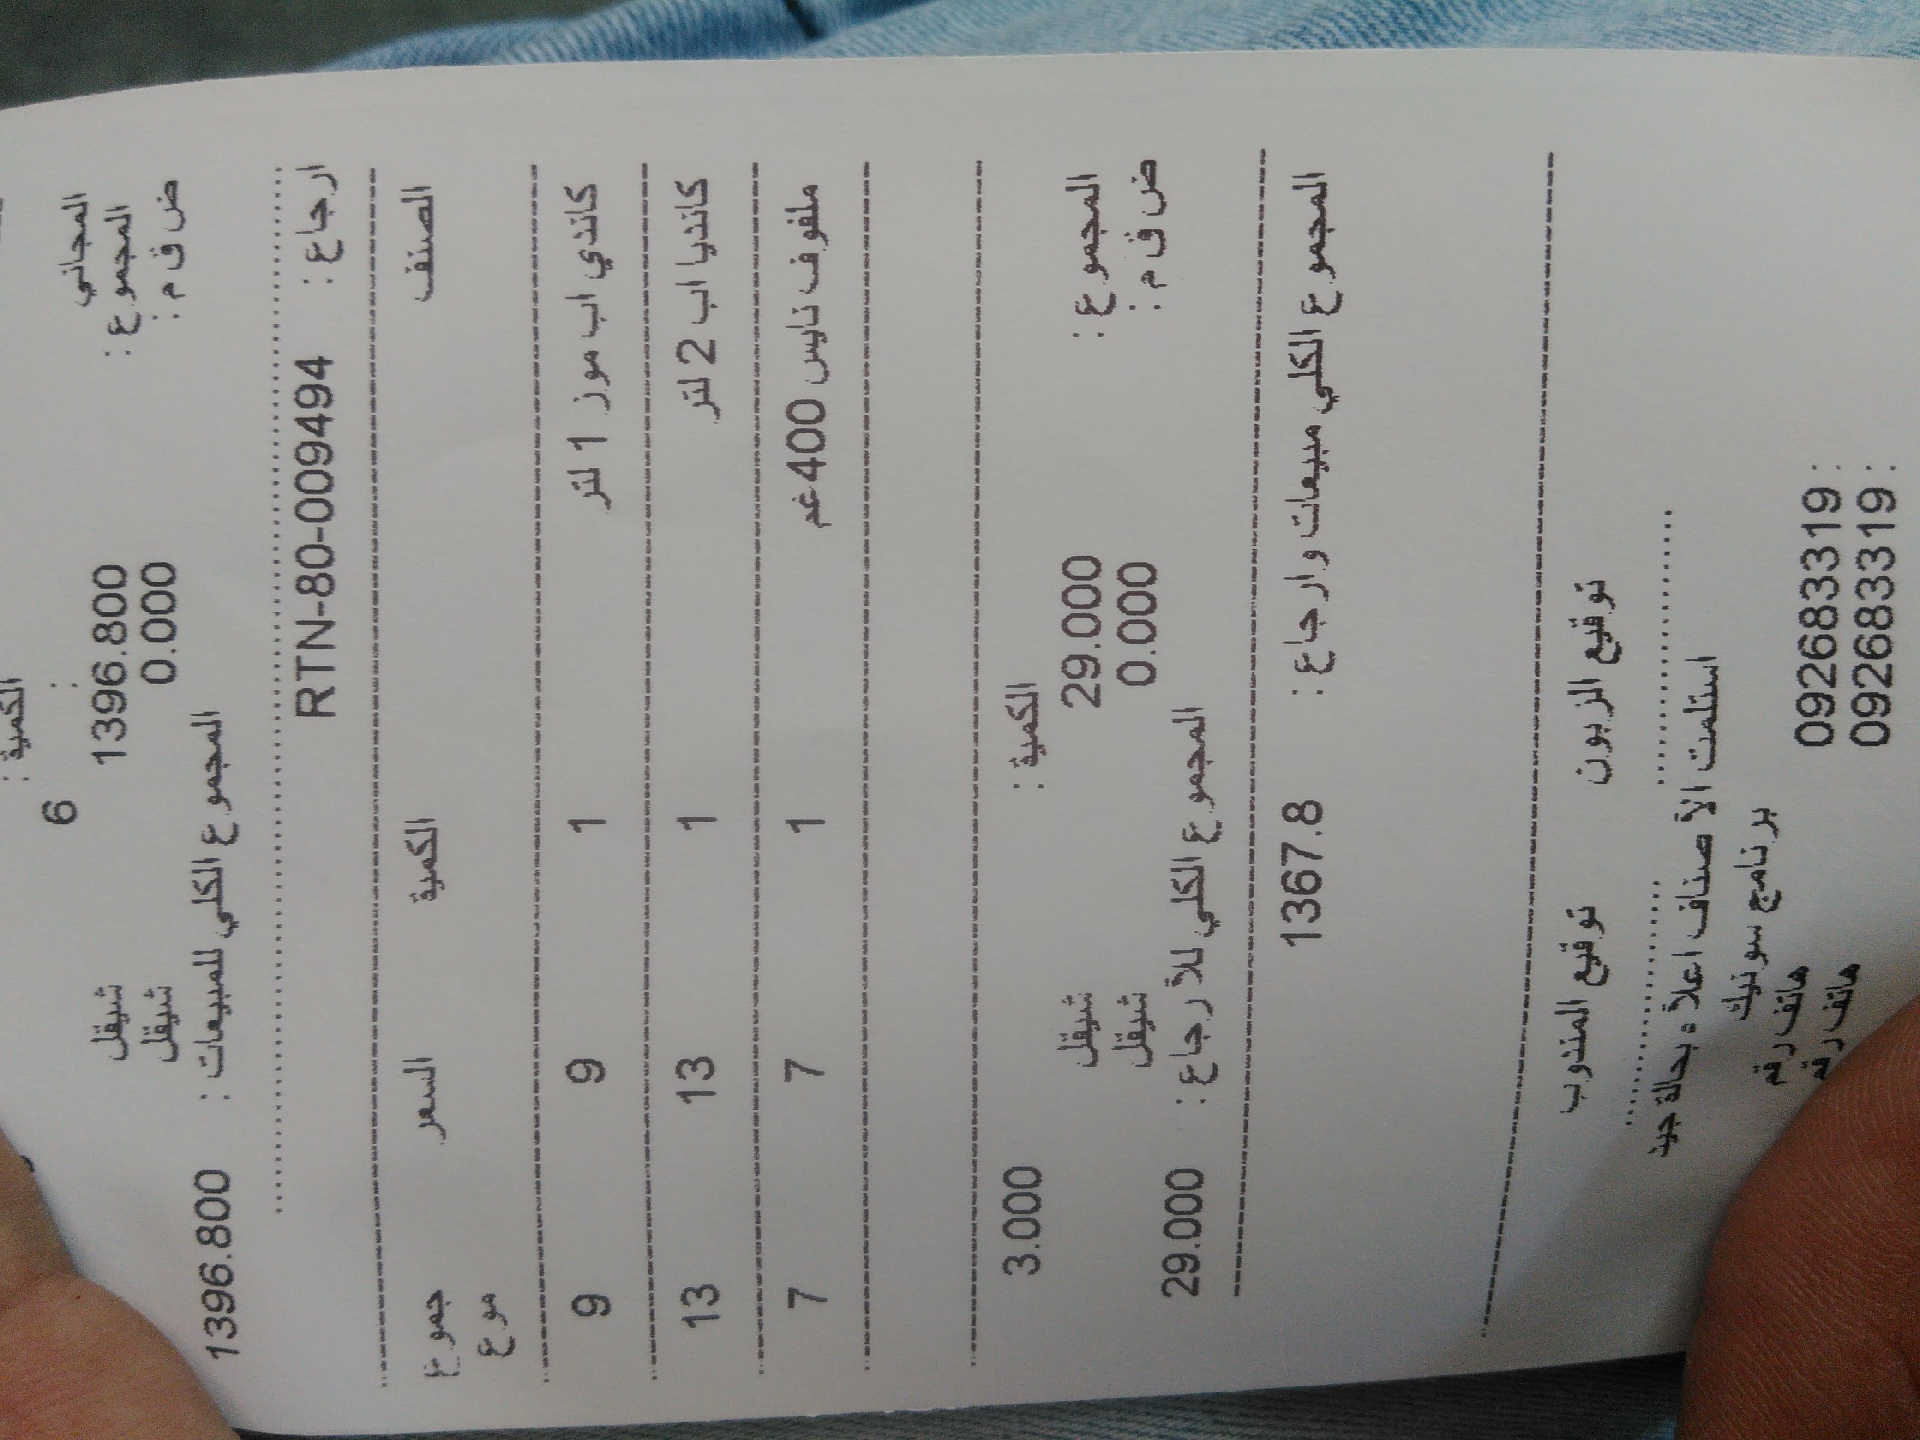 الكمية :
المجاني : 6
المجموع : 1396.800 شيقل
ض ق م : 0.000 شيقل
المجموع الكلي للمبيعات : 1396.800
ارجاع : RTN-80-009494
الصنف الكمية السعر جموع
موع
كاندي اب موز 1 لتر 1 9 9
كانديا اب 2 لتر 1 13 13
ملفوف نايس 400غم 1 7 7
الكمية : 3.000
المجموع : 29.000 شيقل
ض ق م : 0.000 شيقل
المجموع الكلي للأرجاع : 29.000
المجموع الكلي مبيعات و ارجاع : 1367.8
توقيع الزبون توقيع المندوب
استلمت الأصناف اعلاه بحالة جيد
برنامج سونيك
هاتف رقم : 092683319
هاتف رقم : 092683319